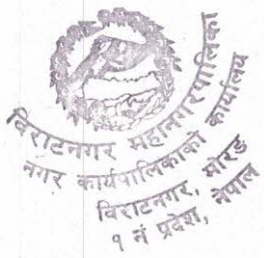 विराटनगर महानगरपालिका
नगर कार्यपालिकाको कार्यालय
विराटनगर, मोरङ
१ नं प्रदेश, नेपाल